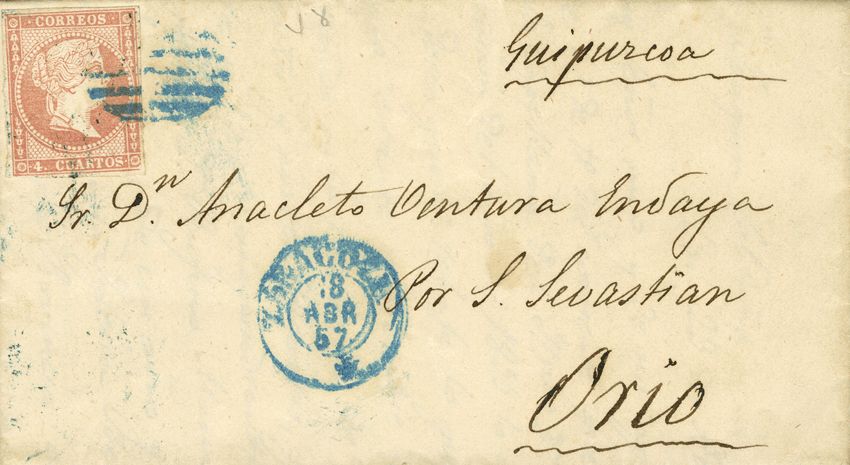 J8
CORREOS
4. CUARTOS
Guipurcoa
Sr. Dn. Anacleto Ventura Endaya
ZARAGOZA
18
ABR
57
Por S. Sevastian
Orio